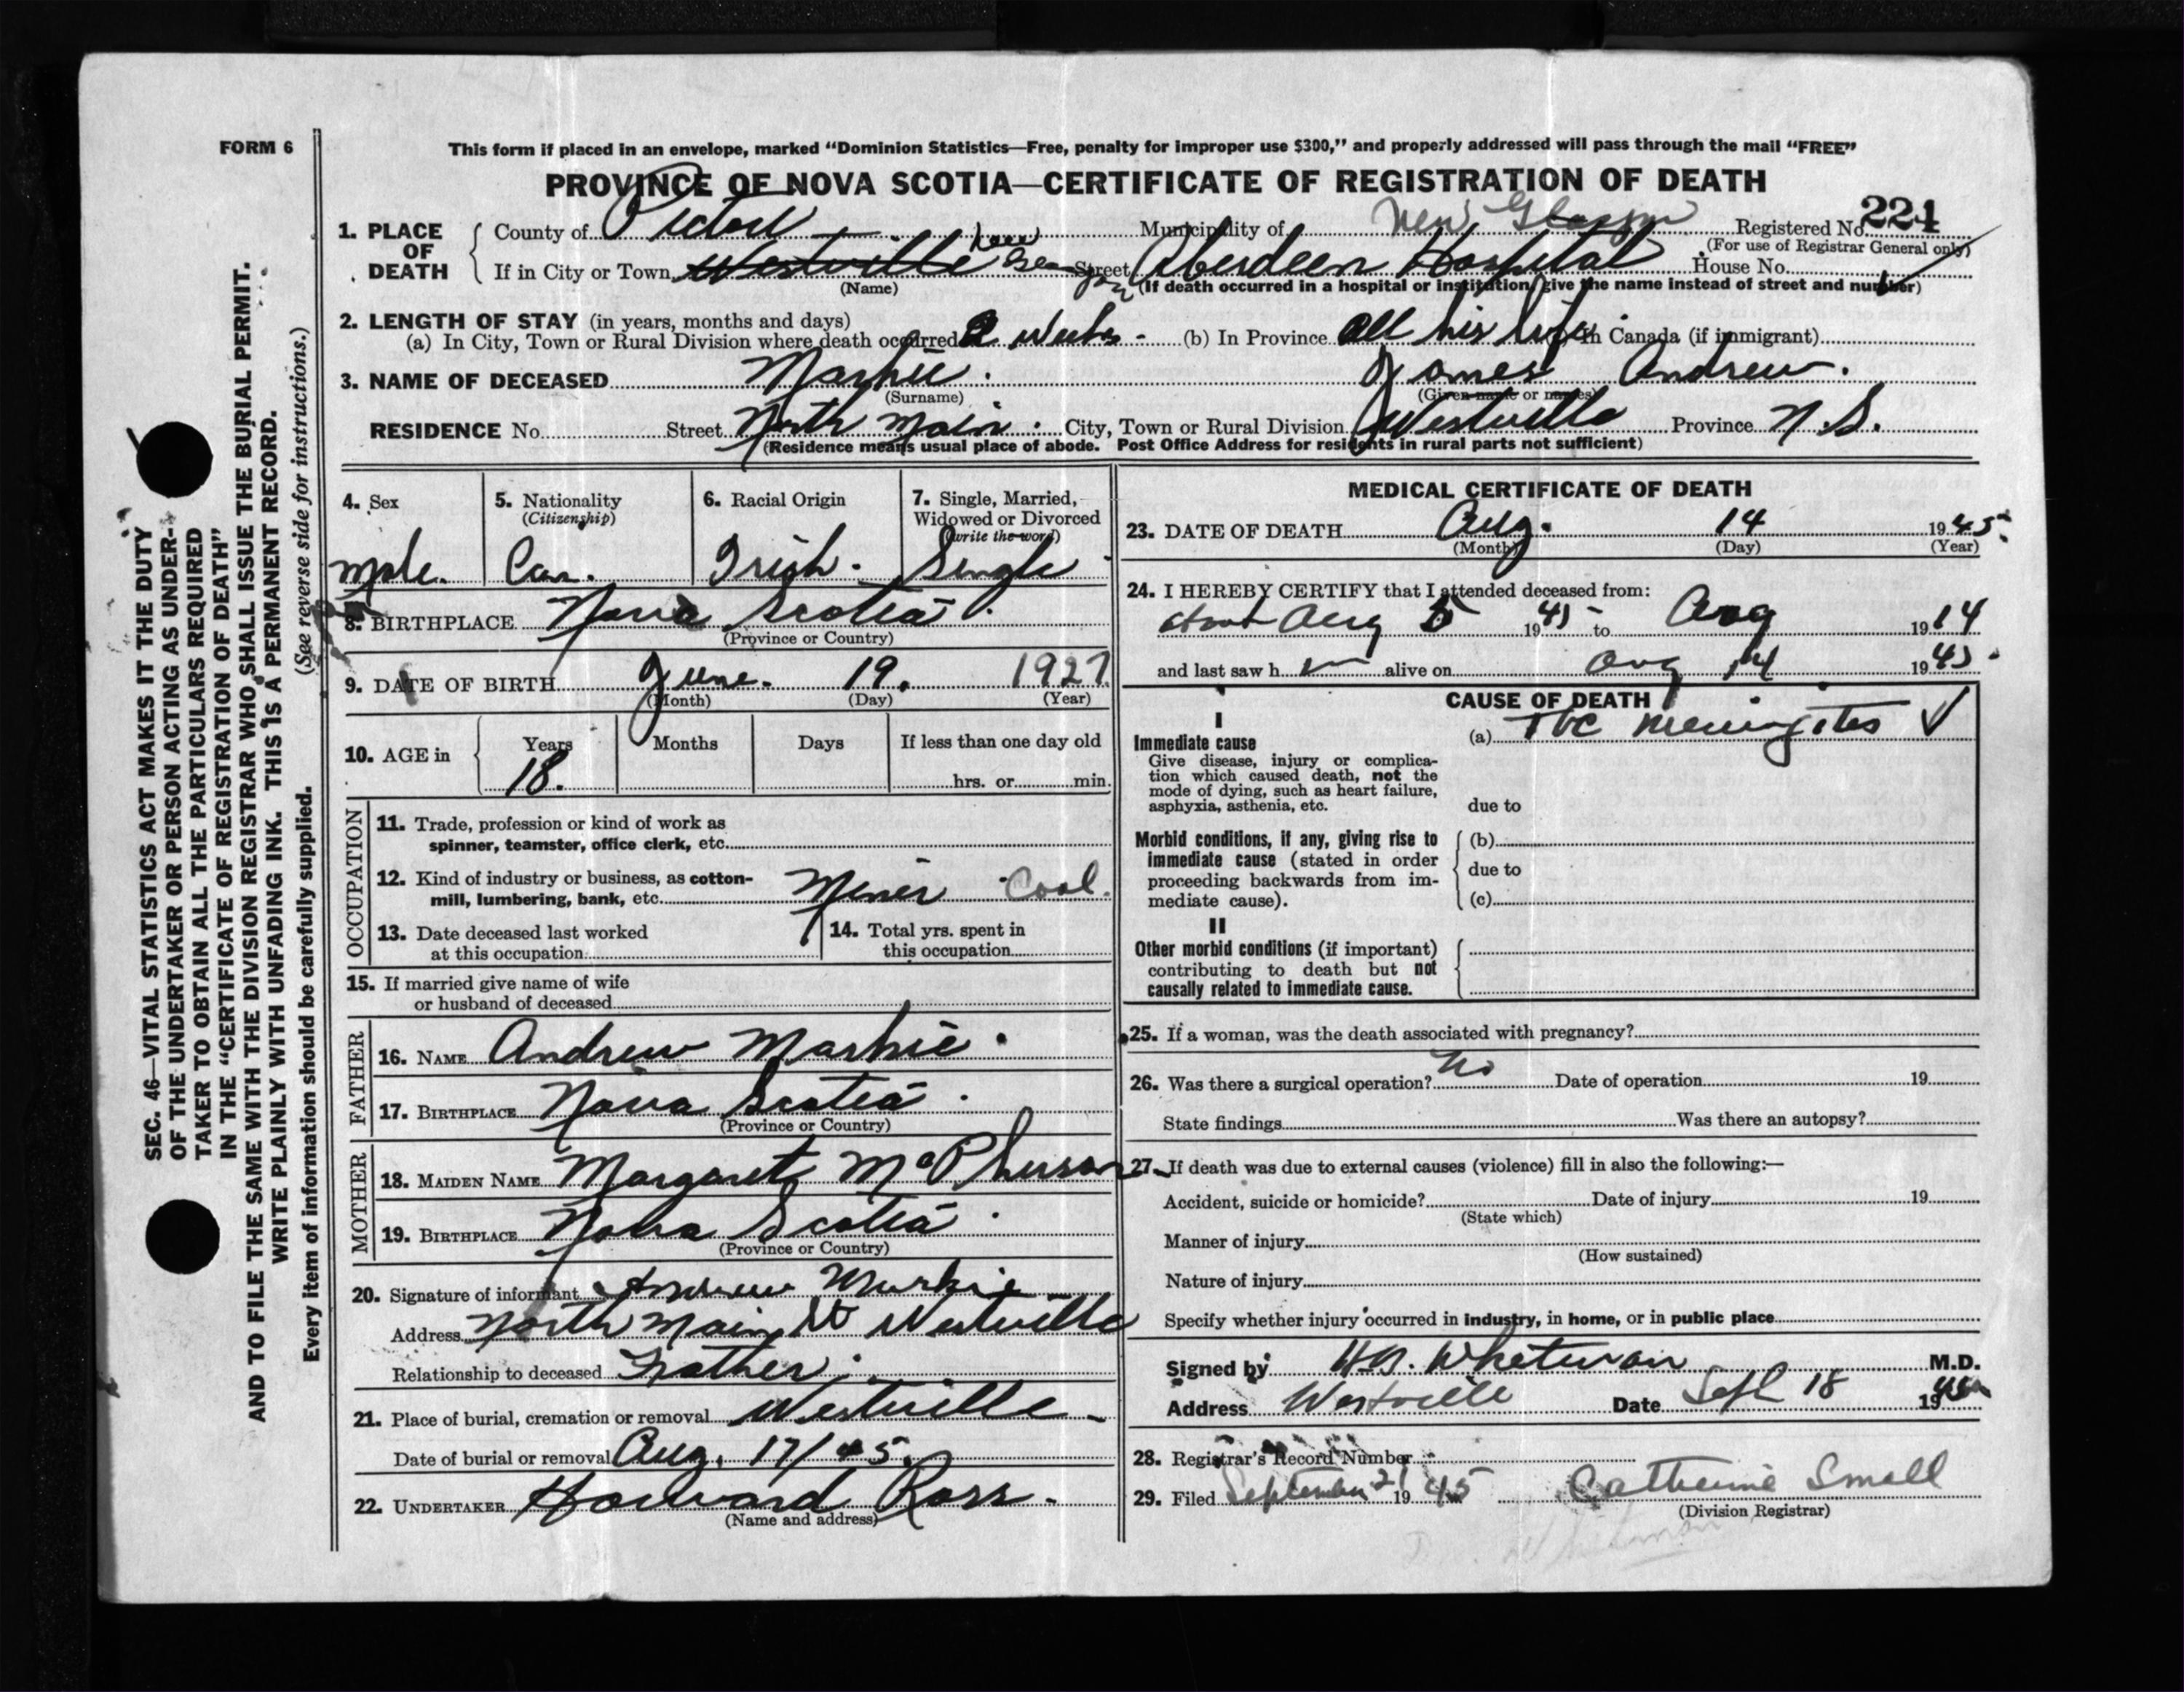 FORM 6
This form if placed in an envelope, marked "Dominion Statistics—Free, penalty for improper use $300," and properly addressed will pass through the mail "FREE"
PROVINCE OF NOVA SCOTIA—CERTIFICATE OF REGISTRATION OF DEATH
1. PLACE OF DEATH
County of Pictou Municipality of New Glasgow Registered No. 224
(For use of Registrar General only)
If in City or Town Westville New Glasgow Street Aberdeen Hospital House No.
(Name) (If death occurred in a hospital or institution, give the name instead of street and number)
2. LENGTH OF STAY (in years, months and days)
(a) In City, Town or Rural Division where death occurred 2 Weeks - (b) In Province All his life In Canada (if immigrant)
3. NAME OF DECEASED Markie. James Andrew.
(Surname) (Given name or names)
RESIDENCE No. Street North Main. City, Town or Rural Division Westville Province N.S.
(Residence means usual place of abode. Post Office Address for residents in rural parts not sufficient)
4. Sex
Male.
5. Nationality
(Citizenship)
Can.
6. Racial Origin
Irish.
7. Single, Married, Widowed or Divorced
(write the word)
Single
8. BIRTHPLACE Nova Scotia.
(Province or Country)
9. DATE OF BIRTH June. 19. 1927
(Month) (Day) (Year)
10. AGE in Years Months Days If less than one day old
18. hrs. or min.
OCCUPATION
11. Trade, profession or kind of work as
spinner, teamster, office clerk, etc.
12. Kind of industry or business, as cotton-
mill, lumbering, bank, etc. Miner Coal.
13. Date deceased last worked
at this occupation
14. Total yrs. spent in
this occupation
15. If married give name of wife
or husband of deceased
FATHER
16. NAME Andrew Markie.
17. BIRTHPLACE Nova Scotia.
(Province or Country)
MOTHER
18. MAIDEN NAME Margaret McPherson
19. BIRTHPLACE Nova Scotia.
(Province or Country)
20. Signature of informant Andrew Markie
Address North Main St Westville
Relationship to deceased Father.
21. Place of burial, cremation or removal Westville
Date of burial or removal Aug. 17/45.
22. UNDERTAKER Howard Ross.
(Name and address)
MEDICAL CERTIFICATE OF DEATH
23. DATE OF DEATH Aug. 14 1945
(Month) (Day) (Year)
24. I HEREBY CERTIFY that I attended deceased from:
about Aug 5 1945 to Aug 1914
and last saw h alive on Aug 14 1945
CAUSE OF DEATH
I
Immediate cause (a) Tbc meningites
Give disease, injury or complica-
tion which caused death, not the
mode of dying, such as heart failure,
asphyxia, asthenia, etc. due to
Morbid conditions, if any, giving rise to (b)
immediate cause (stated in order
proceeding backwards from im- due to
mediate cause). (c)
II
Other morbid conditions (if important)
contributing to death but not
causally related to immediate cause.
25. If a woman, was the death associated with pregnancy?
26. Was there a surgical operation? No Date of operation 19
State findings Was there an autopsy?
27. If death was due to external causes (violence) fill in also the following:—
Accident, suicide or homicide? Date of injury 19
(State which)
Manner of injury
(How sustained)
Nature of injury
Specify whether injury occurred in industry, in home, or in public place
Signed by Whitman M.D.
Address Westville Date Sept 18 1945
28. Registrar's Record Number
29. Filed September 21 1945 Catherine Small
(Division Registrar)
Whitman
SEC. 46—VITAL STATISTICS ACT MAKES IT THE DUTY
OF THE UNDERTAKER OR PERSON ACTING AS UNDER-
TAKER TO OBTAIN ALL THE PARTICULARS REQUIRED
IN THE "CERTIFICATE OF REGISTRATION OF DEATH"
AND TO FILE THE SAME WITH THE DIVISION REGISTRAR WHO SHALL ISSUE THE BURIAL PERMIT.
WRITE PLAINLY WITH UNFADING INK. THIS IS A PERMANENT RECORD.
Every item of information should be carefully supplied. (See reverse side for instructions.)